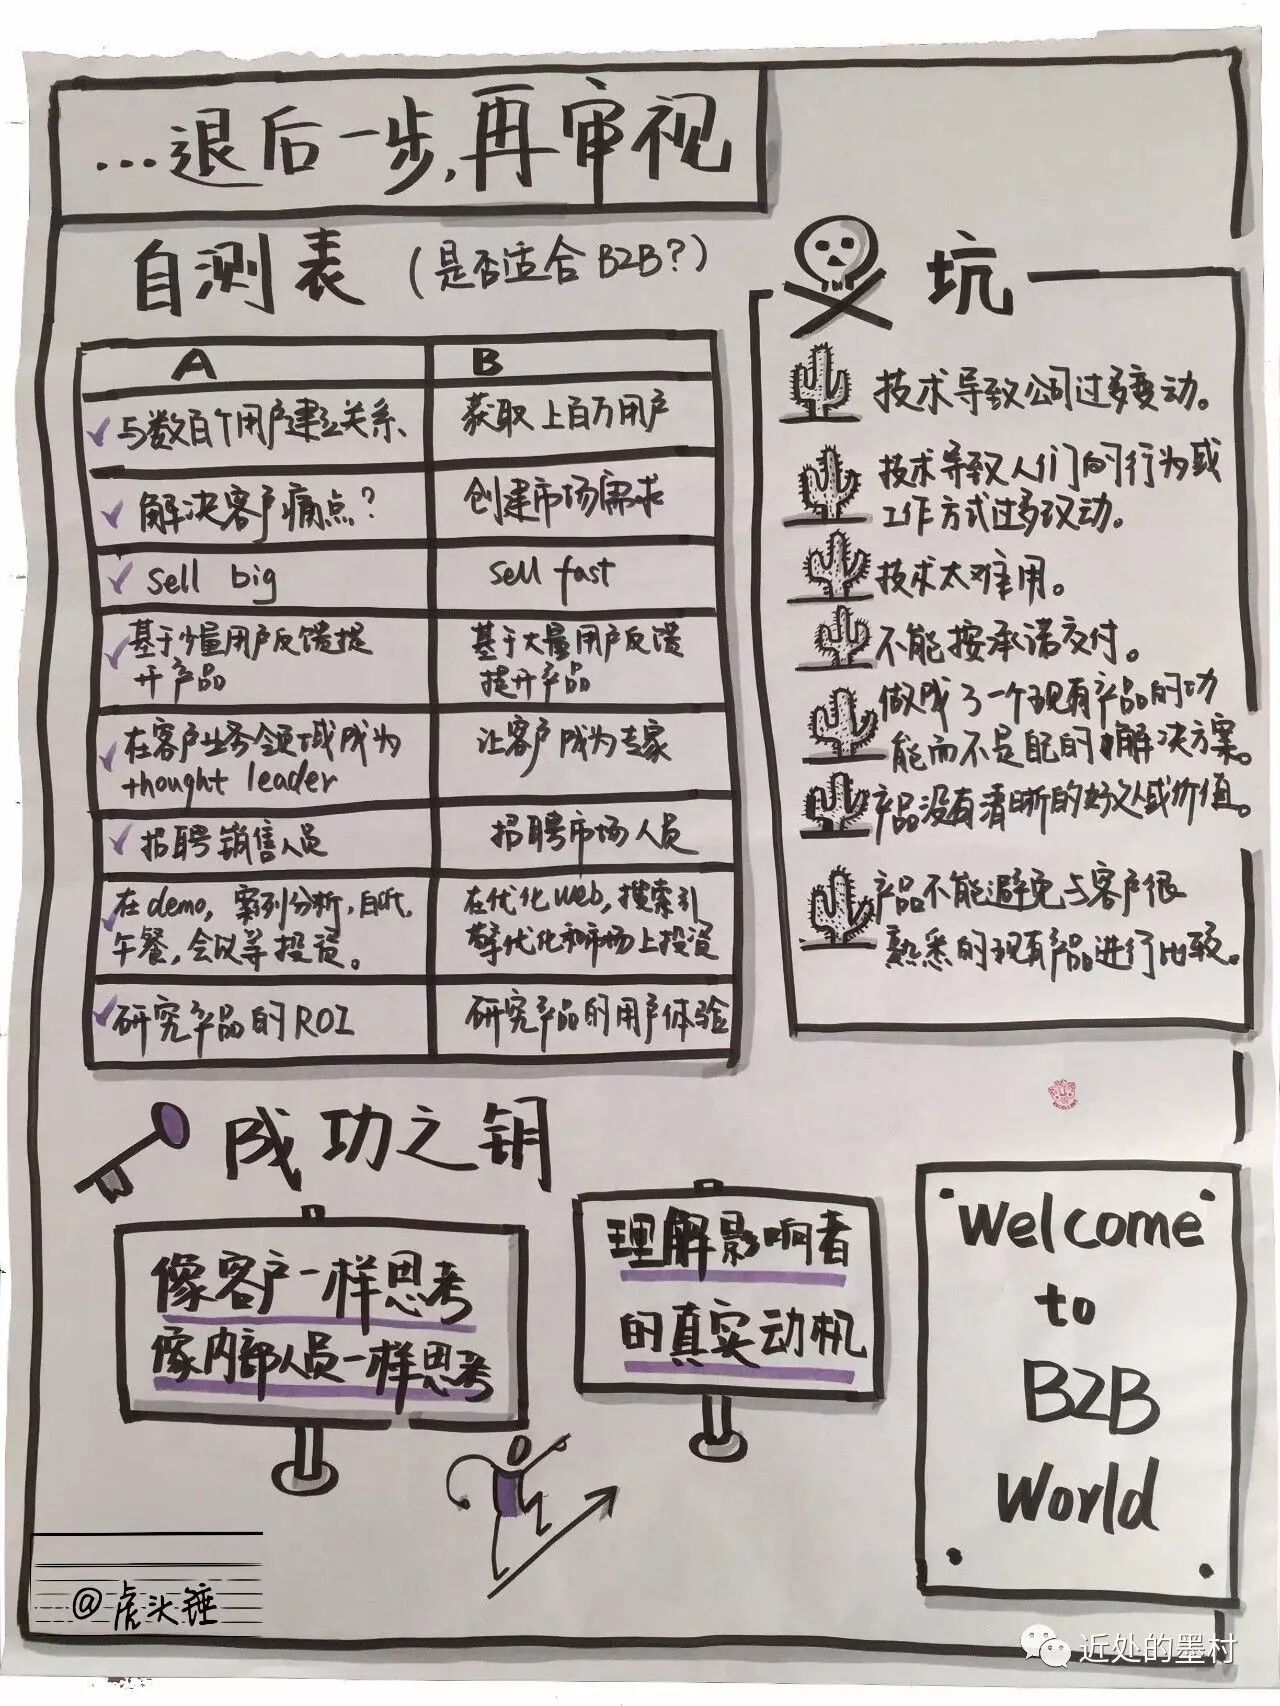 ...退后一步,再审视
自测表 (是否适合B2B?)
A
B
与数百个用户建立关系
获取上百万用户
解决客户痛点?
创建市场需求
sell big
sell fast
基于少量用户反馈提
升产品
基于大量用户反馈
提升产品
在客户业务领域成为
thought leader
让客户成为专家
招聘销售人员
招聘市场人员
在demo,案列分析,
午餐,会议等投资。
在优化web,搜索引
擎优化和市场上投资
研究产品的ROI
研究产品的用户体验
坑
技术导致公司过多变动。
技术导致人们的行为或
工作方式过多改动。
技术太难用。
不能按承诺交付。
做成了一个现有产品的功
能而不是自己的解决方案。
产品没有清晰的好处或价值。
产品不能避免与客户很
熟悉的现有产品进行比较。
成功之钥
像客户一样思考
像内部人员一样思考
理解影响者
的真实动机
Welcome
to
B2B
World
@虎头锤
近处的墨村